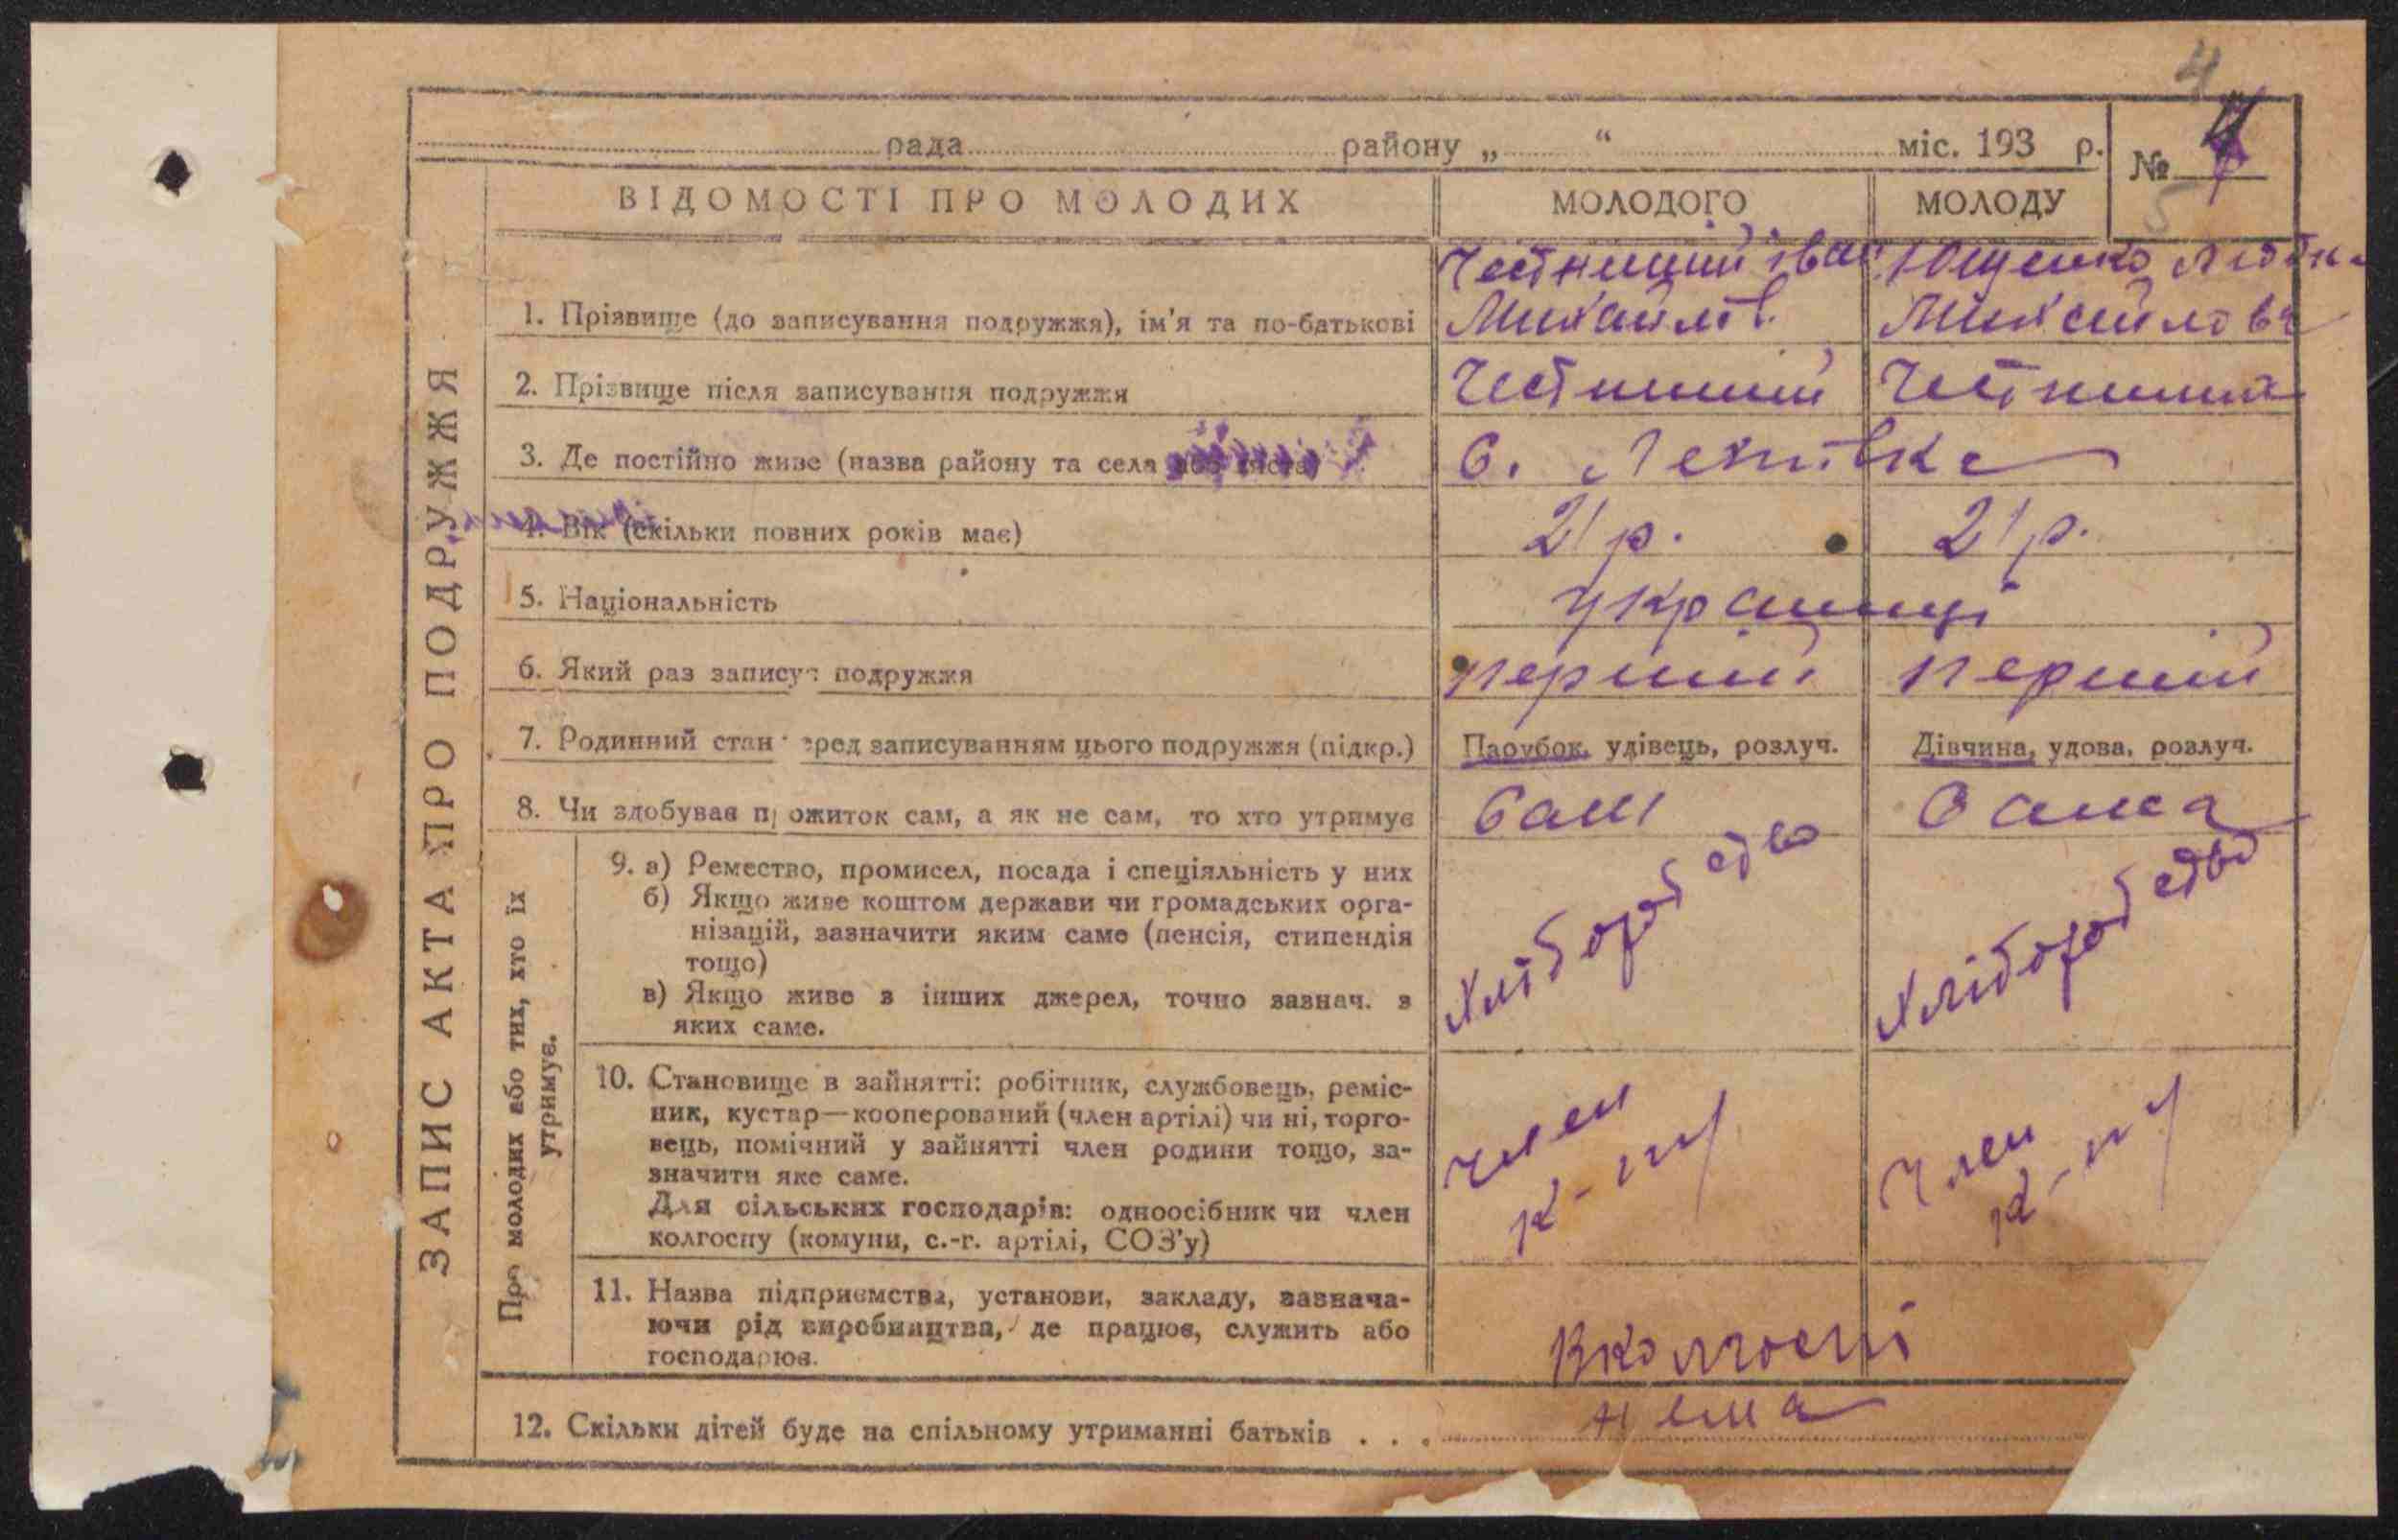 4
рада району „ “ міс. 193 р.
№ 4
5
ЗАПИС АКТА ПРО ПОДРУЖЖЯ
ВІДОМОСТІ ПРО МОЛОДИХ МОЛОДОГО МОЛОДУ
Ющенко
1. Прізвище (до записування подружжя), ім'я та по-батькові Михайлов. Михайловa
2. Прізвище після записування подружжя
3. Де постійно живе (назва району та села або міста) С.
4. Вік (скільки повних років має) 21 р. 21 р.
5. Національність українці
6. Який раз записує подружжя перший перший
7. Родинний стан перед записуванням цього подружжя (підкр.) Парубок, удівець, розлуч. Дівчина, удова, розлуч.
8. Чи здобував прожиток сам, а як не сам, то хто утримує Сам Сама
Про молодих або тих, хто їх
утримує.
9. а) Ремество, промисел, посада і спеціяльність у них
б) Якщо живе коштом держави чи громадських орга-
нізацій, зазначити яким саме (пенсія, стипендія
тощо)
в) Якщо живе з інших джерел, точно зазнач. з
яких саме.
Хліборобство Хліборобство
10. Становище в зайнятті: робітник, службовець, реміс-
ник, кустар—кооперований (член артілі) чи ні, торго-
вець, помічний у зайнятті член родини тощо, за-
значити яке саме.
Для сільських господарів: одноосібник чи член
колгоспу (комуни, с.-г. артілі, СОЗ'у)
Член Член
11. Назва підприємства, установи, закладу, зазнача-
ючи рід виробництва, де працює, служить або
господарює.
В колгоспі
12. Скільки дітей буде на спільному утриманні батьків . . . нема